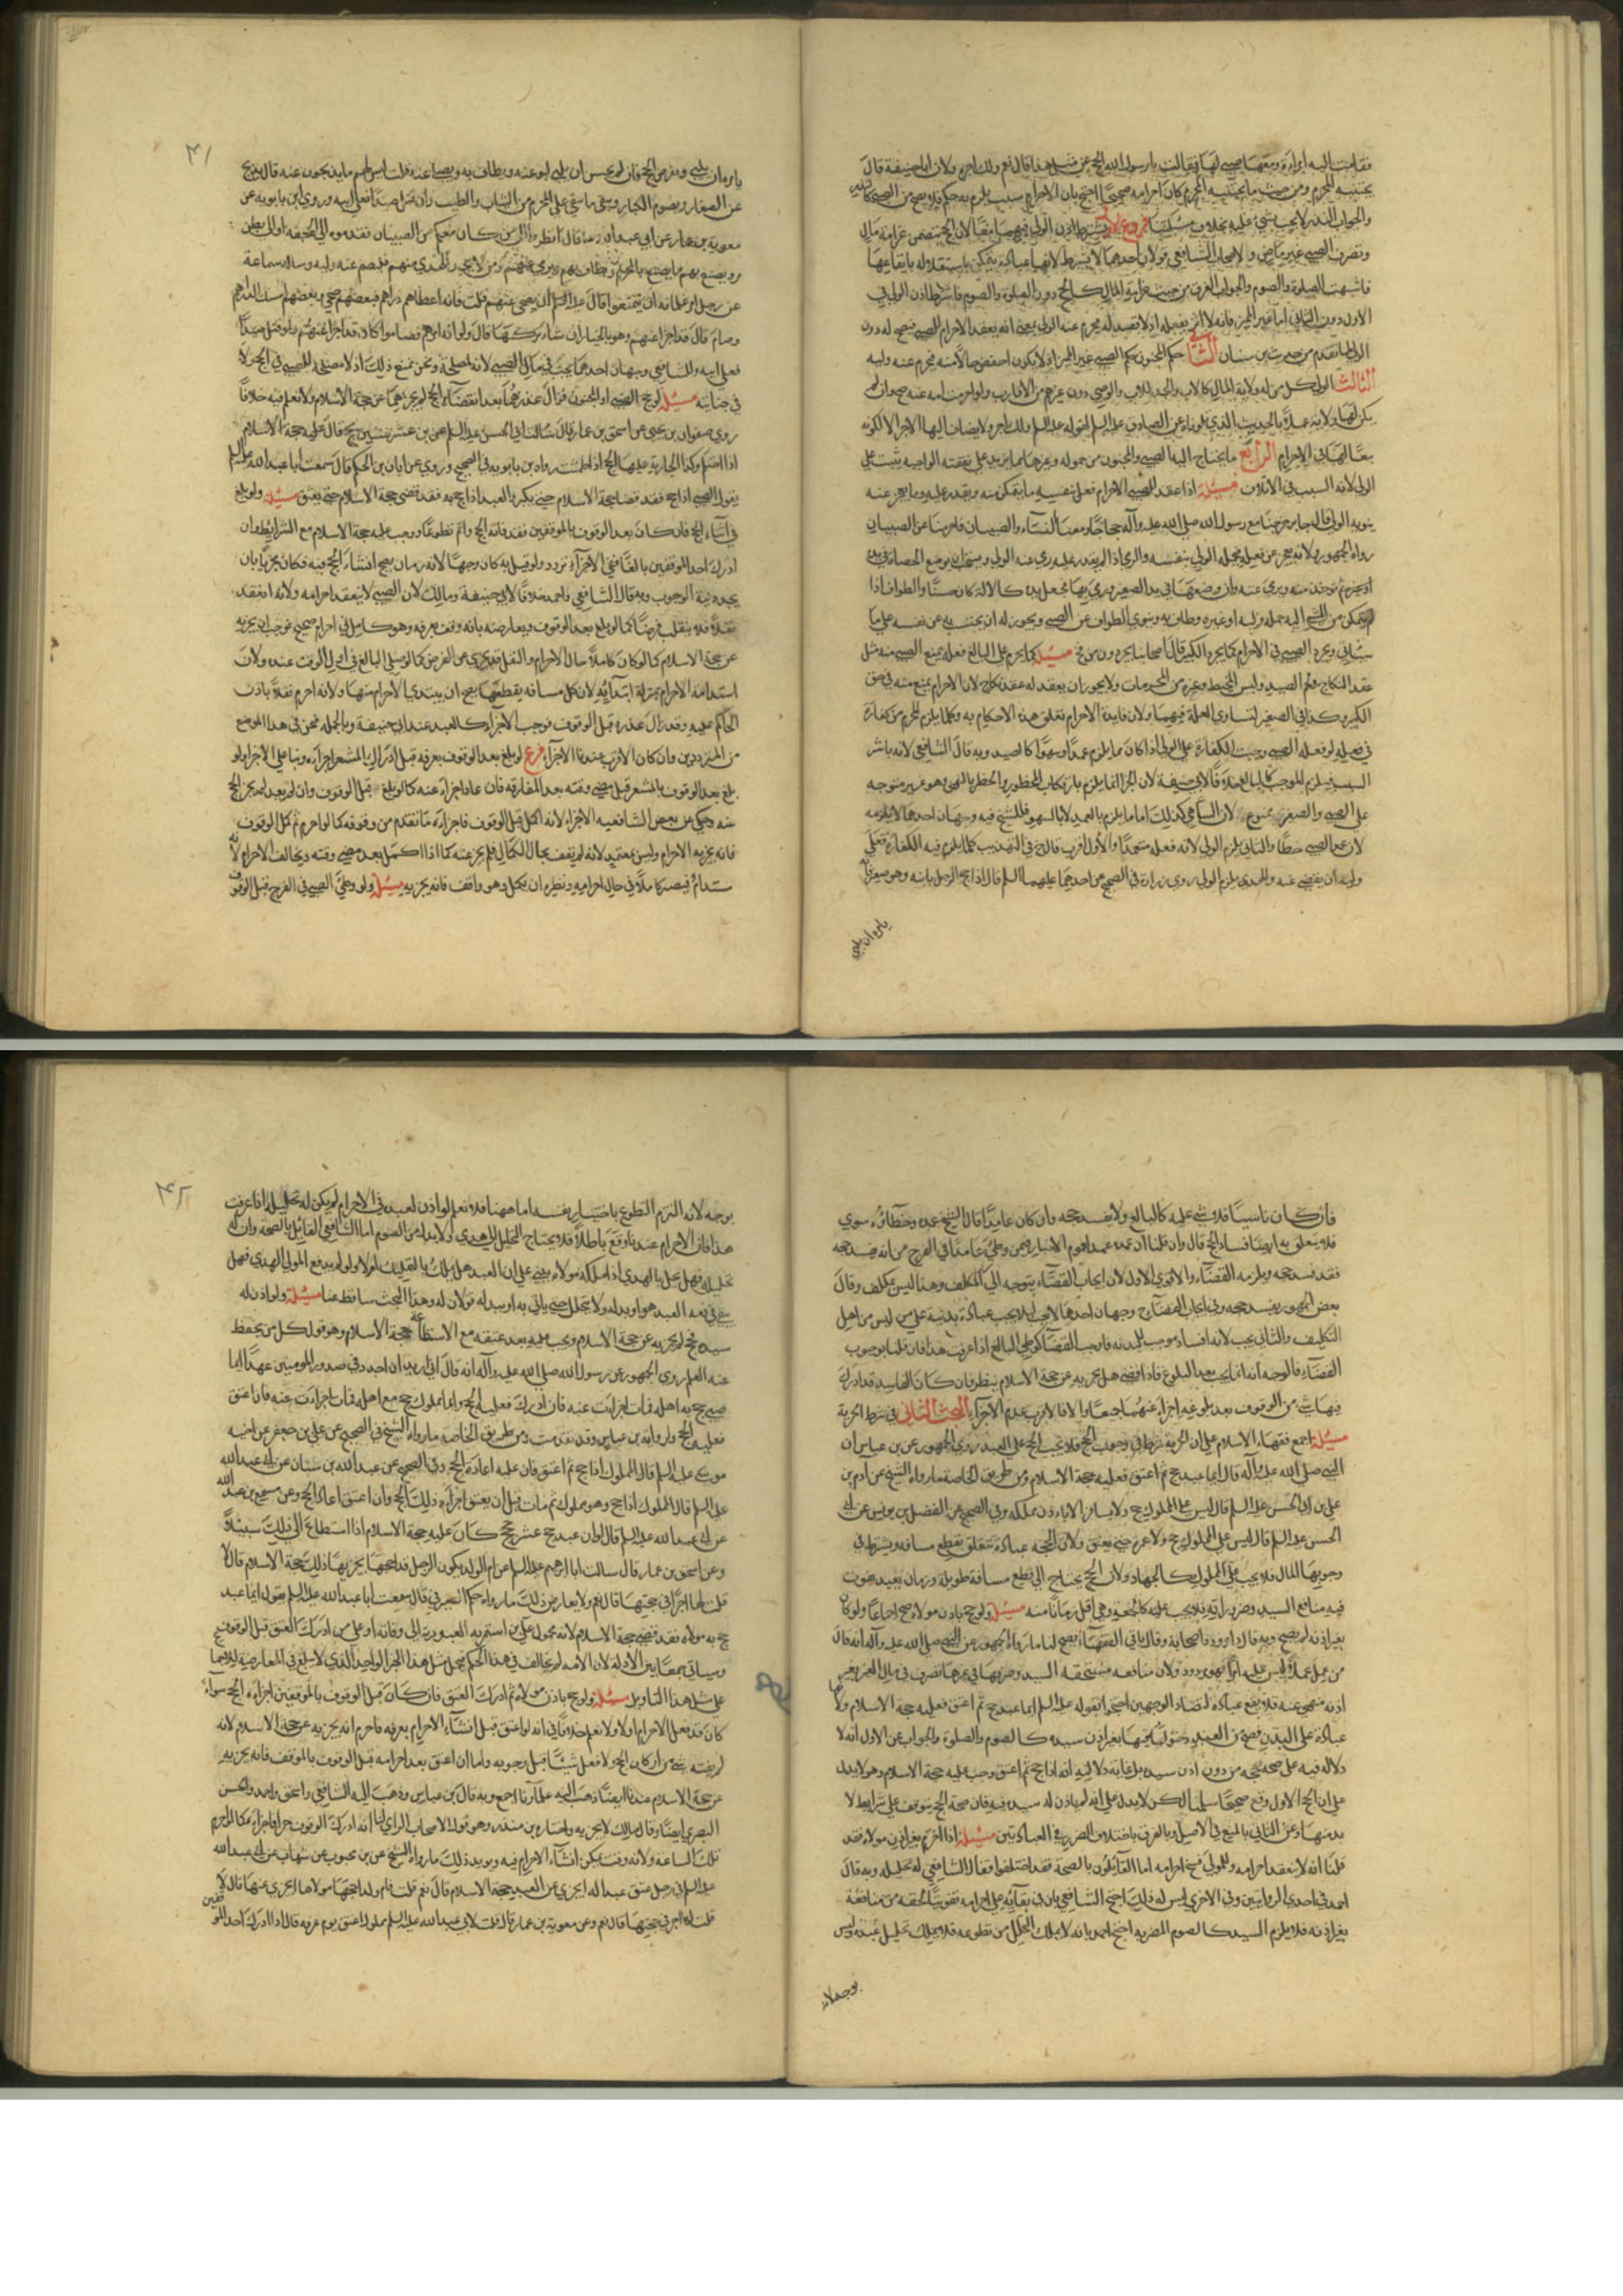 فقامت اليه امراءة ومعها صبي لها فقالت يارسول الله الحج عن مثل هذا قال نعم ولك اجره ولان ابا حنيفة قال
يجتنبه المحرم ومن حيث ما يجتنبه المحرم كان احرامه صحيحا احتج بان الاحرام سبب يلزم به حكم فلا يصح من الصبي كالنذر
والجواب النذر لا يجب به شئ عليه بخلاف مسئلتنا فروع الاول يشترط اذن الولي فيهما معا لان الحج يتضمن غرامة مال
وتصرف الصبي غير ماض ولاصحاب الشافعي قولان احدهما لا يشترط لانها عبادة يتمكن باستقلاله بايقاعها
فاشبهت الصلوة والصوم والجواب الفرق من حيث غرامة المال كالحج دون الصلوة والصوم فاشترط اذن الولي في
الاول دون الثاني اما غير المميز فانه لا اثر بفعله اذ لا قصد له يحرم عنه الولي بمعنى انه يعقد الاحرام للصبي فيصح له دون
الولي لما تقدم من حديث بن سنان الثاني حكم المجنون حكم الصبي غير المميز اذ لا يكون اخفض حالا منه فيحرم عنه وليه
الثالث الولي كل من له ولاية المال كالاب والجد للاب والوصي دون غيرهم من الاقارب ولو احرمت امه عنه صح وان لم
يكن لها ولاية عملا بالحديث الذي تلوناه عن الصادق عليه السلم لقوله عليه السلم ولك اجره ولا يضاف اليها الاجر الا لكونه
تبعا لها في الاحرام الرابع ما يحتاج اليه الصبي والمجنون من حموله وغيرها مما يزيد على نفقته الواجبة يثبت على
الولي لانه السبب في الاتلاف مسئلة اذا عقد للصبي الاحرام فعل بنفسه ما يتمكن منه ويقدر عليه وما يعجز عنه
ينوبه الولي قال جابر خرجنا مع رسول الله صلى الله عليه وآله حجاجا ومعنا النساء والصبيان فاحرمنا عن الصبيان
رواه الجمهور ولانه عجز عن فعله فحمله الولي بنفسه والرمي اذا لم يقدر عليه رمى عنه الولي ويستحب ان يوضع الحصاة في يده
او يحرم ثم توخذ منه ويرمى عنه وان وضعها في يد الصغير ورمى بها فجعل يده كالالة كان حسنا والطواف اذا
لم يتمكن من المشي اليه حمله وليه او غيره وطاف به وينوي الطواف عن الصبي ويجوز له ان يحتسب به عن نفسه على ما
سياتي ويجرد الصبي في الاحرام كما يجرد الكبير قال اصحابنا يجردون من فخ مسئلة كلما يحرم على البالغ فعله يمنع الصبي منه مثل
عقد النكاح وقتل الصيد ولبس المخيط وغيره من المحرمات ولا يجوز ان يعقد له عقد نكاح لان الاحرام يمنع منه في حق
الكبير وكذا في الصغير لتساوي العلة فيهما ولان فايدة الاحرام تعلق هذه الاحكام به وكلما يلزم المحرم من كفارة
في فعله لو فعله الصبي وجبت الكفارة على الولي اذا كان مما يلزم عمدا وسهوا كالصيد وبه قال الشافعي لانه باشر
السبب فيلزم الموجب كالبالغ خلافا لابي حنيفة لان الجزا انما يلزم بارتكاب المحظور والحظر بالنهي وهو غير متوجه
على الصبي والصغرى ممنوعة لان الساهي كذلك اما ما يلزم بالعمد لا بالسهو فللشيخ فيه وجهان احدهما لا يلزمه
لان عمد الصبي خطا والثاني يلزم الولي لانه فعله متعمدا والاول اقرب قال في التهذيب كلما يلزم فيه الكفارة فعلى
وليه ان يقضي عنه والهدي يلزم الولي روى زرارة في الصحيح عن احدهما عليهما السلم قال اذا حج الرجل بابنه وهو صغير فانه
يامره ان يلبي
٤١
يامره ان يلبي ويفرض الحج فان لم يحسن ان يلبي لبوا عنه ويطاف به ويصلى عنه قلت ليس لهم ما يذبحون عنه قال يذبح
عن الصغار ويصوم الكبار ويتقى ما يتقى على المحرم من الثياب والطيب وان قتل صيدا فعلى ابيه وروى ابن بابويه عن
معوية بن عمار عن ابي عبد الله ع قال انظروا الى من كان معكم من الصبيان فقدموه الى الجحفة او الى بطن
مر ويصنع بهم ما يصنع بالمحرم ويطاف بهم ويرمى عنهم ومن لا يجد الهدي منهم فليصم عنه وليه وساله سماعة
عن رجل امر غلمانه ان يتمتعوا قال عليه السلم ان يضحي عنهم قلت فانه اعطاهم دراهم فبعضهم ضحى وبعضهم امسك الدراهم
وصام قال قد اجزا عنهم وهو بالخيار ان شاء تركها قال ولو انه امرهم فصاموا كان قد اجزا عنهم ولو قتل صيدا
فعلى ابيه وللشافعي وجهان احدهما يجب في مال الصبي لانه لمصلحته ونحن نمنع ذلك اذ لا مصلحة للصبي في الحج ولا
في جنايته مسئلة لو حج الصبي او المجنون فزال عذرهما بعد انقضاء الحج لم يجزهما عن حجة الاسلام ولا نعلم فيه خلافا
روى صفوان بن يحيى عن اسحق بن عمار قال سالت ابا الحسن عليه السلم عن بن عشر سنين يحج قال عليه حجة الاسلام
اذا احتلم وكذا الجارية عليها الحج اذا طمثت رواه بن بابويه في الصحيح وروى عن ابان بن الحكم قال سمعت ابا عبد الله عليه السلم
يقول الصبي اذا حج فقد قضى حجة الاسلام حتى يكبر والعبد اذا حج به فقد قضى حجة الاسلام حتى يعتق مسئلة ولو بلغ
في اثناء الحج فان كان بعد الوقوف بالموقفين فقد فاته الحج واتم تطوعا ووجب عليه حجة الاسلام مع الشرايط وان
ادرك احد الموقفين بالغا ففي الاجزاء تردد ولو قيل به كان وجها لانه زمان يصح انشاء الحج فيه فكان مجزيا بان
يجدد نية الوجوب وبه قال الشافعي واحمد خلافا لابي حنيفة ومالك لان الصبي لا ينعقد احرامه ولانه انعقد
نفلا فلا ينقلب فرضا كما لو بلغ بعد الوقوف ويعارضه بانه وقف بعرفه وهو كامل في احرام صحيح فوجب ان يجزيه
عن حجة الاسلام كما لو كان كاملا حال الاحرام والنفل قد يجزي عن الفرض كما لو صلى البالغ في اول الوقت عنده ولان
استدامة الاحرام بمنزلة ابتدائه لان كل مسافة يقطعها يصح ان يبتدي الاحرام منها ولانه احرم نفلا باذن
الحاكم عليه وقد زال عذره قبل الوقوف فوجب الاجزاء كالعبد عند ابي حنيفة وبالجمله فنحن في هذا الموضع
من المترددين وان كان الاقرب عندنا الاجزاء فرع لو بلغ بعد الوقوف بعرفه قبل ادراك المشعر اجزاه وبنا على الاجزاء لو
بلغ بعد الوقوف بالمشعر قبل مضي وقته بعد المفارقة فان عاد اجزاء عنه كما لو بلغ قبل الوقوف وان لم يعد لم يجز الحج
عنه وحكي عن بعض الشافعيه الاجزاء لانه اكمل قبل الوقوف فاجزاءه ما تقدم من وقوفه كما لو احرم ثم كمل الوقوف
فانه يجزيه الاحرام وليس بمعتمد لانه لم يقف بحال الكمال فلم يجز عنه كما اذا اكمل بعد مضي وقته ويخالف الاحرام لانه
مستدام فيصير كاملا في حال احرامه ونظيره ان يكمل وهو واقف فانه يجزيه مسئلة ولو وطئ الصبي في الفرج قبل الوقوف
فان كان ناسيا فلا شئ عليه كالبالغ ولا يفسد حجه وان كان عامدا قال الشيخ عمده وخطاؤه سوى
فلا يتعلق به ايضا فساد الحج قال وان قلنا ان عمده عمد لعموم الاخبار فيمن وطئ عامدا في الفرج من انه يفسد حجه
فقد فسد حجه ويلزمه القضاء والاقوى الاول لان ايجاب القضاء يتوجه الى المكلف وهذا ليس بمكلف وقال
بعض الجمهور يفسد حجه وفي ايجاب القضاء وجهان احدهما لا يجب لئلا يجب عبادة بدنية على من ليس من اهل
التكليف والثاني يجب لانه افساد موجب للبدنه فاوجب القضاء كوطي البالغ اذا عرفت هذا فان قلنا بوجوب
القضاء فالوجه انه انما يجب بعد البلوغ فاذا قضى هل يجزيه عن حجة الاسلام ينظر فان كان الفاسد قد ادرك
فيها شيئا من الوقوف بعد بلوغه اجزاء عنهما جميعا والا فالاقرب عدم الاجزاء البحث الثاني في شرط الحرية
مسئلة اجمع فقهاء الاسلام على ان الحرية شرط في وجوب الحج فلا يجب الحج على العبد روى الجمهور عن بن عباس ان
النبي صلى الله عليه وآله قال ايما عبد حج ثم اعتق فعليه حجة الاسلام ومن طريق الخاصة ما رواه الشيخ عن آدم بن
علي عن ابي الحسن عليه السلم قال ليس على المملوك حج ولا يسافر الا باذن مملكه وفي الصحيح عن الفضل بن يونس عن ابي
الحسن عليه السلم قال ليس على المملوك حج ولا عمرة حتى يعتق ولان الحجه عبادة تتعلق بقطع مسافة ويشترط في
وجوبها المال فلا يجب على المملوك كالجهاد ولان الحج يحتاج الى قطع مسافة طويلة وزمان بعيد يفوت
فيه منافع السيد وضرورياته فلا يجب عليه كالجمعة وهي اقل زمانا منه مسئلة ولو حج باذن مولاه صح اجماعا ولو كان
بغير اذنه لم يصح وبه قال داوود واصحابه وقال باقي الفقهاء يصح لنا ما رواه الجمهور عن النبي صلى الله عليه وآله انه قال
من عمل عملا ليس عليه امرنا فهو مردود ولان منافعه مستحقه السيد وصرفها في غيرها تصرف في مال الغير بغير
اذنه منهي عنه فلا يقع عبادة لتضاد الوجهين احتجوا بقوله عليه السلم ايما عبد حج ثم اعتق فعليه حجة الاسلام ولانها
عبادة على البدن فصح من العبيد حق الدخول فيها بغير اذن سيده كالصوم والصلوة والجواب عن الاول انه لا
دلاله فيه على صحة حجه من دون اذن سيده بل غاية دلاليه انه اذا حج ثم اعتق وجب عليه حجة الاسلام وهو لا يدل
على ان الحج الاول وقع صحيحا سلمنا لكن لا يدل على انه لم ياذن له سيده فيه فان صحة الحج يتوقف على شرايط لا
بد منها وعن الثاني بالمنع في الاصل وبالفرق باختلاف الضرر في العبادتين مسئلة اذا احرم بغير اذن مولاه فقد
قلنا انه لا ينعقد احرامه وللمولى فسخ احرامه اما القائلون بالصحة فقد اختلفوا فقال الشافعي له تحليله وبه قال
احمد في احدى الروايتين وفي الاخرى ليس له ذلك احتج الشافعي بان في بقائه على احرامه تفويتا لحقه من منافعه
بغير اذنه فلا يلزم السيد كالصوم المضر به احتج احمد بانه لا يملك التحلل من تطوعه فلا يملك تحليل عبده وليس
بوجه لانه
٤٢
بوجه لانه التزم التطوع باختيار نفسه اما ههنا فلا نعم لو اذن لعبده في الاحرام لم يكن له تحليله اذا عرفت
هذا فان الاحرام عندنا وقع باطلا فلا يحتاج التحليل الى هدي ولا بدله من الصوم اما الشافعي القائل بالصحة وان له
تحليله فهل يحل بالهدي اذا ملكه مولاه يبنى على ان العبد هل يملك بالتمليك ام لا ولو لم يدفع المولى الهدي فهل
يبقى في ذمة العبد هو او بدله ولا يتحلل حتى ياتي به او ببدله قولان له وهذا البحث ساقط عنا مسئلة ولو اذن له
سيده فحج لم يجزيه عن حجة الاسلام ويجب عليه بعد عتقه مع الاستطاعة حجة الاسلام وهو قول كل من يحفظ
عنه العلم روى الجمهور عن رسول الله صلى الله عليه وآله انه قال اني اريد ان اجدد في صدور المومنين عهدا ايما
صبي حج به اهله فمات اجزات عنه فان ادرك فعليه الحج وايما مملوك حج مع اهله فمات اجزات عنه فان اعتق
فعليه الحج وارواية بن عباس وقد تقدمت ومن طريق الخاصة ما رواه الشيخ في الصحيح عن علي بن جعفر عن اخيه
موسى عليه السلم قال المملوك اذا حج ثم اعتق فان عليه اعادة الحج وفي الصحيح عن عبد الله بن سنان عن ابي عبد الله
عليه السلم قال المملوك اذا حج وهو مملوك ثم مات قبل ان يعتق اجزاه ذلك الحج وان اعتق اعاد الحج وعن مسمع بن عبد الله
عن ابي عبد الله عليه السلم قال لو ان عبد حج عشر حجج كان عليه حجة الاسلام اذا استطاع الى ذلك سبيلا
وعن اسحق بن عمار قال سالت ابا ابرهيم عليه السلم عن ام الولد يكون الرجل قد احجها يجزيها ذلك حجة الاسلام قال لا
قلت لها اجر في حجتها قال نعم ولا يعارض ذلك ما رواه حكم الصيرفي قال سمعت ابا عبد الله عليه السلم يقول ايما عبد
حج به مولاه فقد قضى حجة الاسلام لانه محمول على من استمر به العبودية الى وفاته او على من ادرك العتق قبل الوقوف
وسياتي جمعا بين الادلة لان الامة لم يخالف في هذا الحكم فيحمل مثل هذا الخبر الواحد الذي لا يبلغ في المعارضة لاقيما
على مثل هذا التاويل مسئلة ولو حج باذن مولاه ثم ادرك العتق فان كان قبل الوقوف بالموقفين اجزاه الحج سواء
كان قد فعل الاحرام اولا ولا نعلم خلافا في انه لو اعتق قبل انشاء الاحرام بعرفه فاحرم انه يجزيه عن حجة الاسلام لانه
لم يفته شئ من اركان الحج ولا فعل شيئا قبل وجوبه واما ان اعتق بعد احرامه قبل الوقوف بالموقف فانه يجزيه
عن حجة الاسلام عندنا ايضا ذهب اليه علماؤنا اجمع وبه قال بن عباس وذهب اليه الشافعي واسحق واحمد والحسن
البصري ايضا وقال مالك لا يجزيه واختاره بن منذر وهو قول الاصحاب الراي لنا انه ادرك الوقوف حرا فاجزاه كما لو احرم
تلك الساعة ولانه وقت يمكن انشاء الاحرام فيه ويويد ذلك ما رواه الشيخ عن بن محبوب عن شهاب عن ابي عبد الله
عليه السلم في رجل عتق عبدا له ايجزي عن العبد حجة الاسلام قال نعم قلت فام ولد احجها مولاها ايجزي عنها قال لا
قلت لها اجر في حجتها قال نعم وعن معوية بن عمار قال قلت لابي عبد الله عليه السلم مملوك اعتق يوم عرفه قال اذا ادرك احد الموقفين